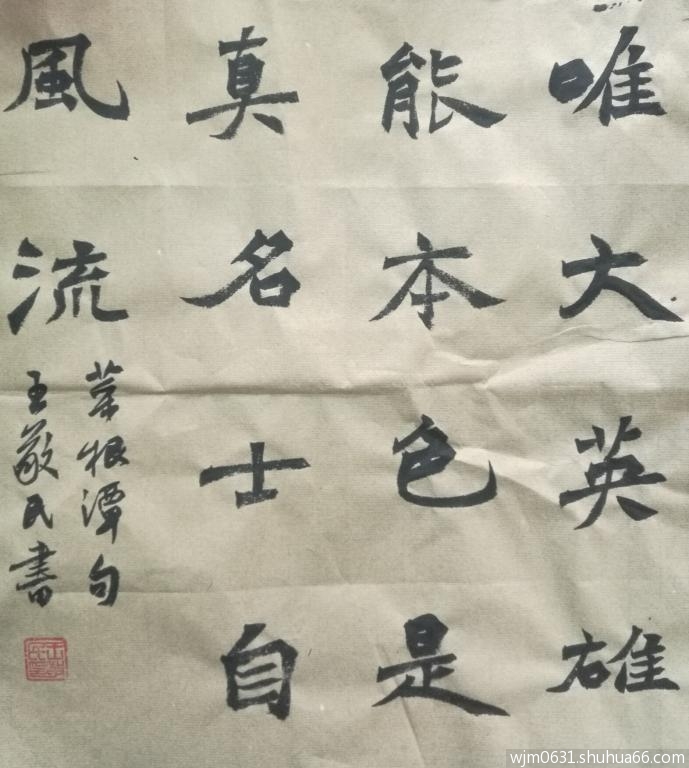 唯大英雄
能本色是
真名士自
風流
菜根潭句
王敬民書
wjm0631.shuhua66.com